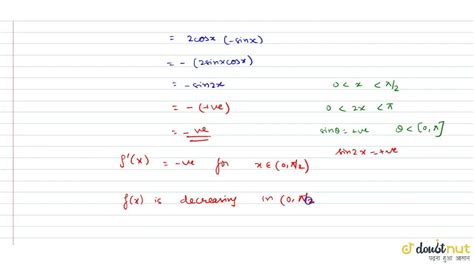 = 2cosx (-sinx)
= - (2sinxcosx)
= -sin2x 0 < x < π/2
= - (+ve) 0 < 2x < π
= -ve sinθ = +ve θ < [0, π]
sin2x = +ve
f'(x) = -ve for x ∈ (0, π/2)
f(x) is decreasing in (0, π/2
doubtnut
पढ़ना हुआ आसान